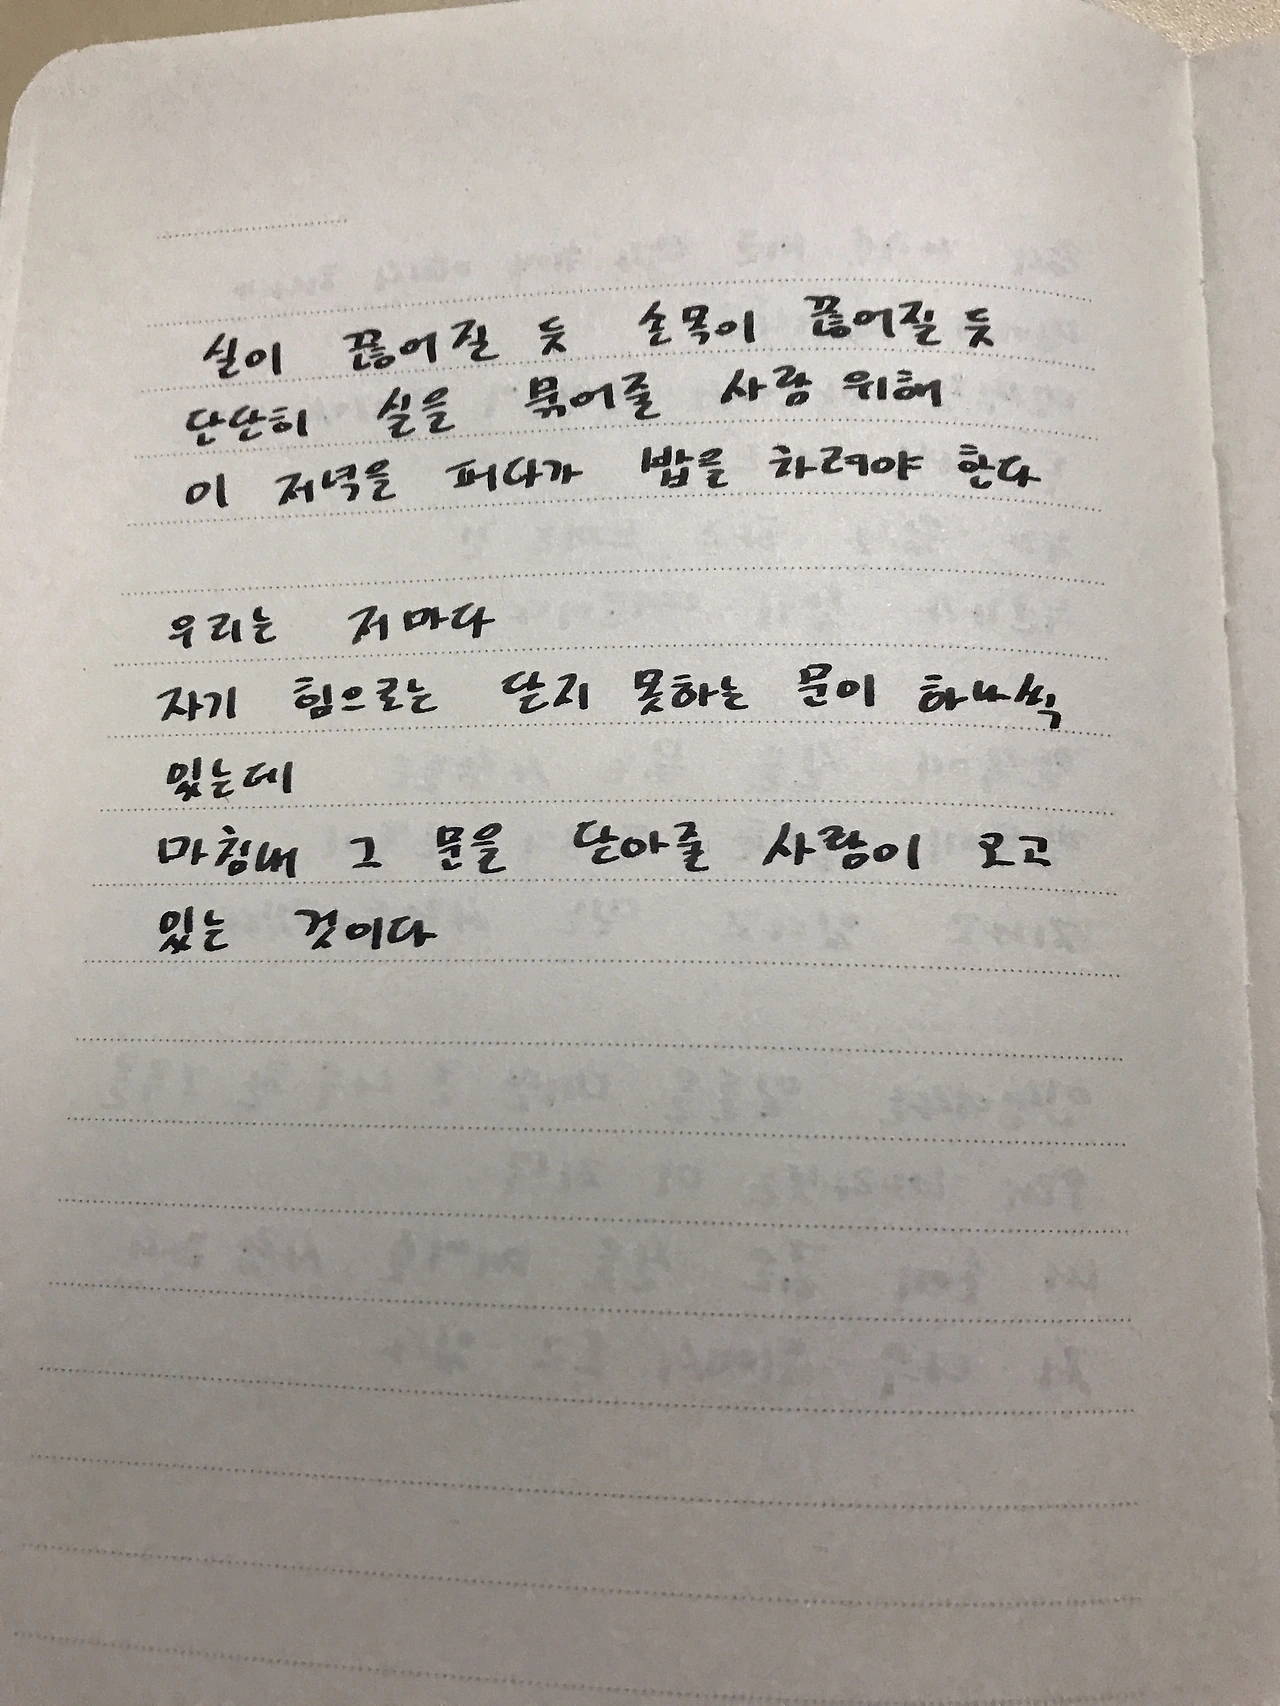 실이 끊어질 듯 손목이 끊어질 듯
단단히 실을 묶어줄 사람 위해
이 저녁을 퍼다가 밥을 하려야 한다
우리는 저마다
자기 힘으로는 닫지 못하는 문이 하나씩
있는데
마침내 그 문을 닫아줄 사람이 오고
있는 것이다